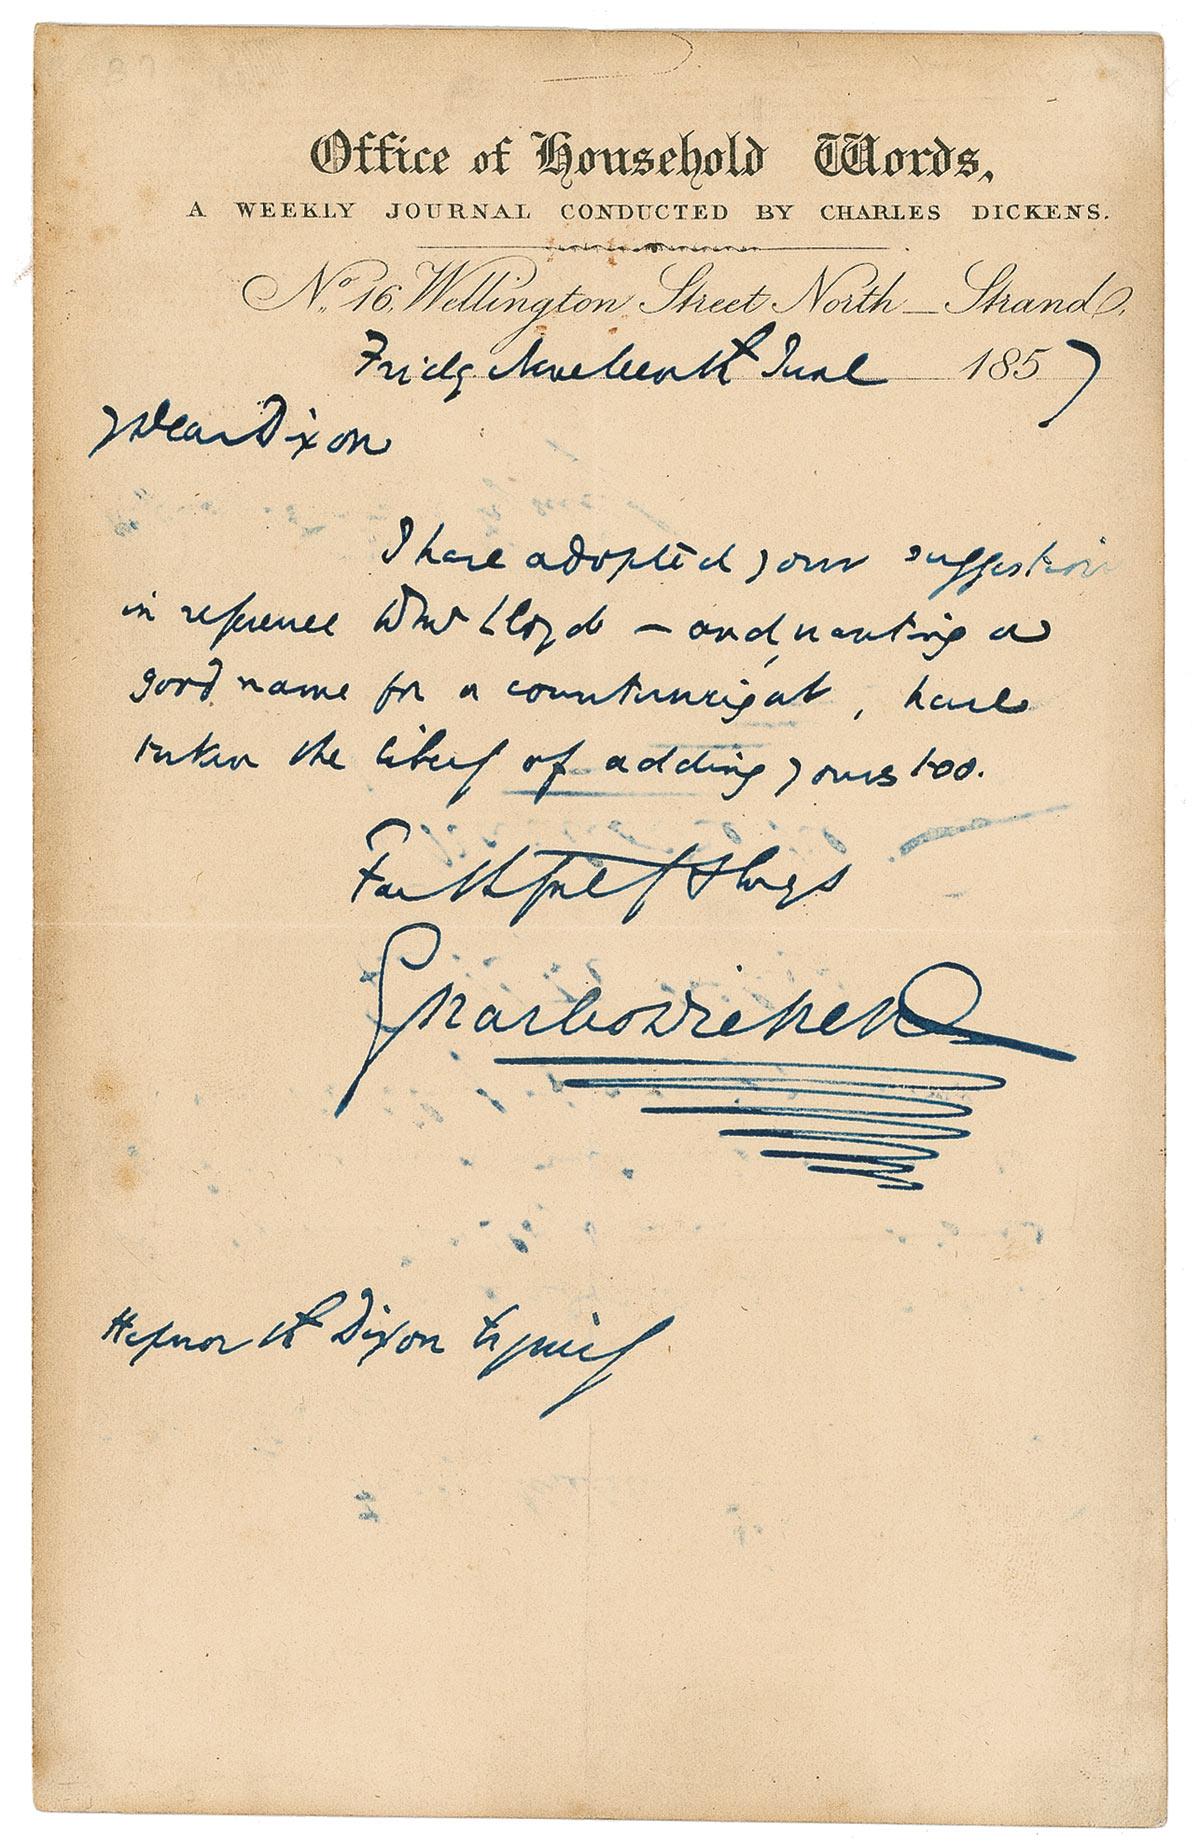 Office of Household Words,
A WEEKLY JOURNAL CONDUCTED BY CHARLES DICKENS.
No. 16, Wellington Street North — Strand,
Friday Nineteenth June 1857
My Dear Dixon
I have adopted your suggestion
in reference to Mr Lloyd — and, wanting a
good name for a counterweight, have
taken the liberty of adding yours too.
Faithfully Yours
Charles Dickens
Hepworth Dixon Esquire